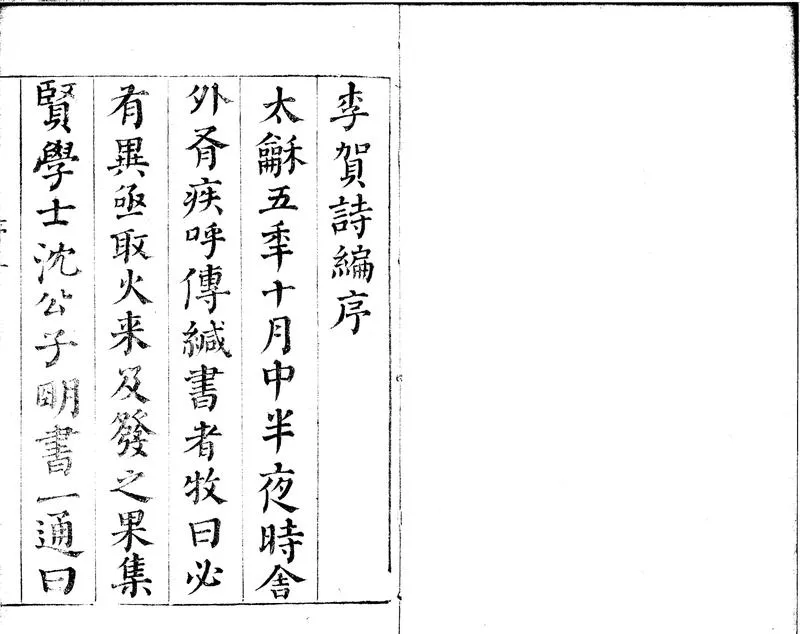 李賀詩編序
太龢五秊十月中半夜時舍
外有疾呼傳緘書者牧曰必
有異亟取火来及發之果集
賢學士沈公子明書一通曰